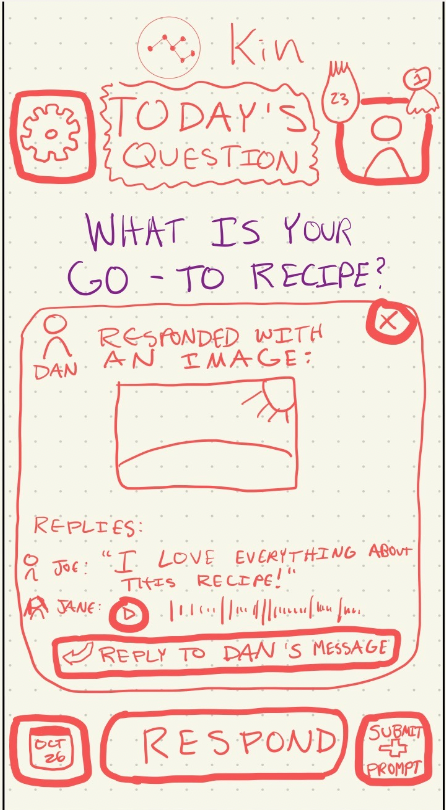 Kin
23
1
TODAY'S
QUESTION
WHAT IS YOUR
GO - TO RECIPE?
DAN
RESPONDED WITH
AN IMAGE:
REPLIES:
JOE: "I LOVE EVERYTHING ABOUT
THIS RECIPE!"
JANE:
REPLY TO DAN'S MESSAGE
OCT
26
RESPOND
SUBMIT
PROMPT